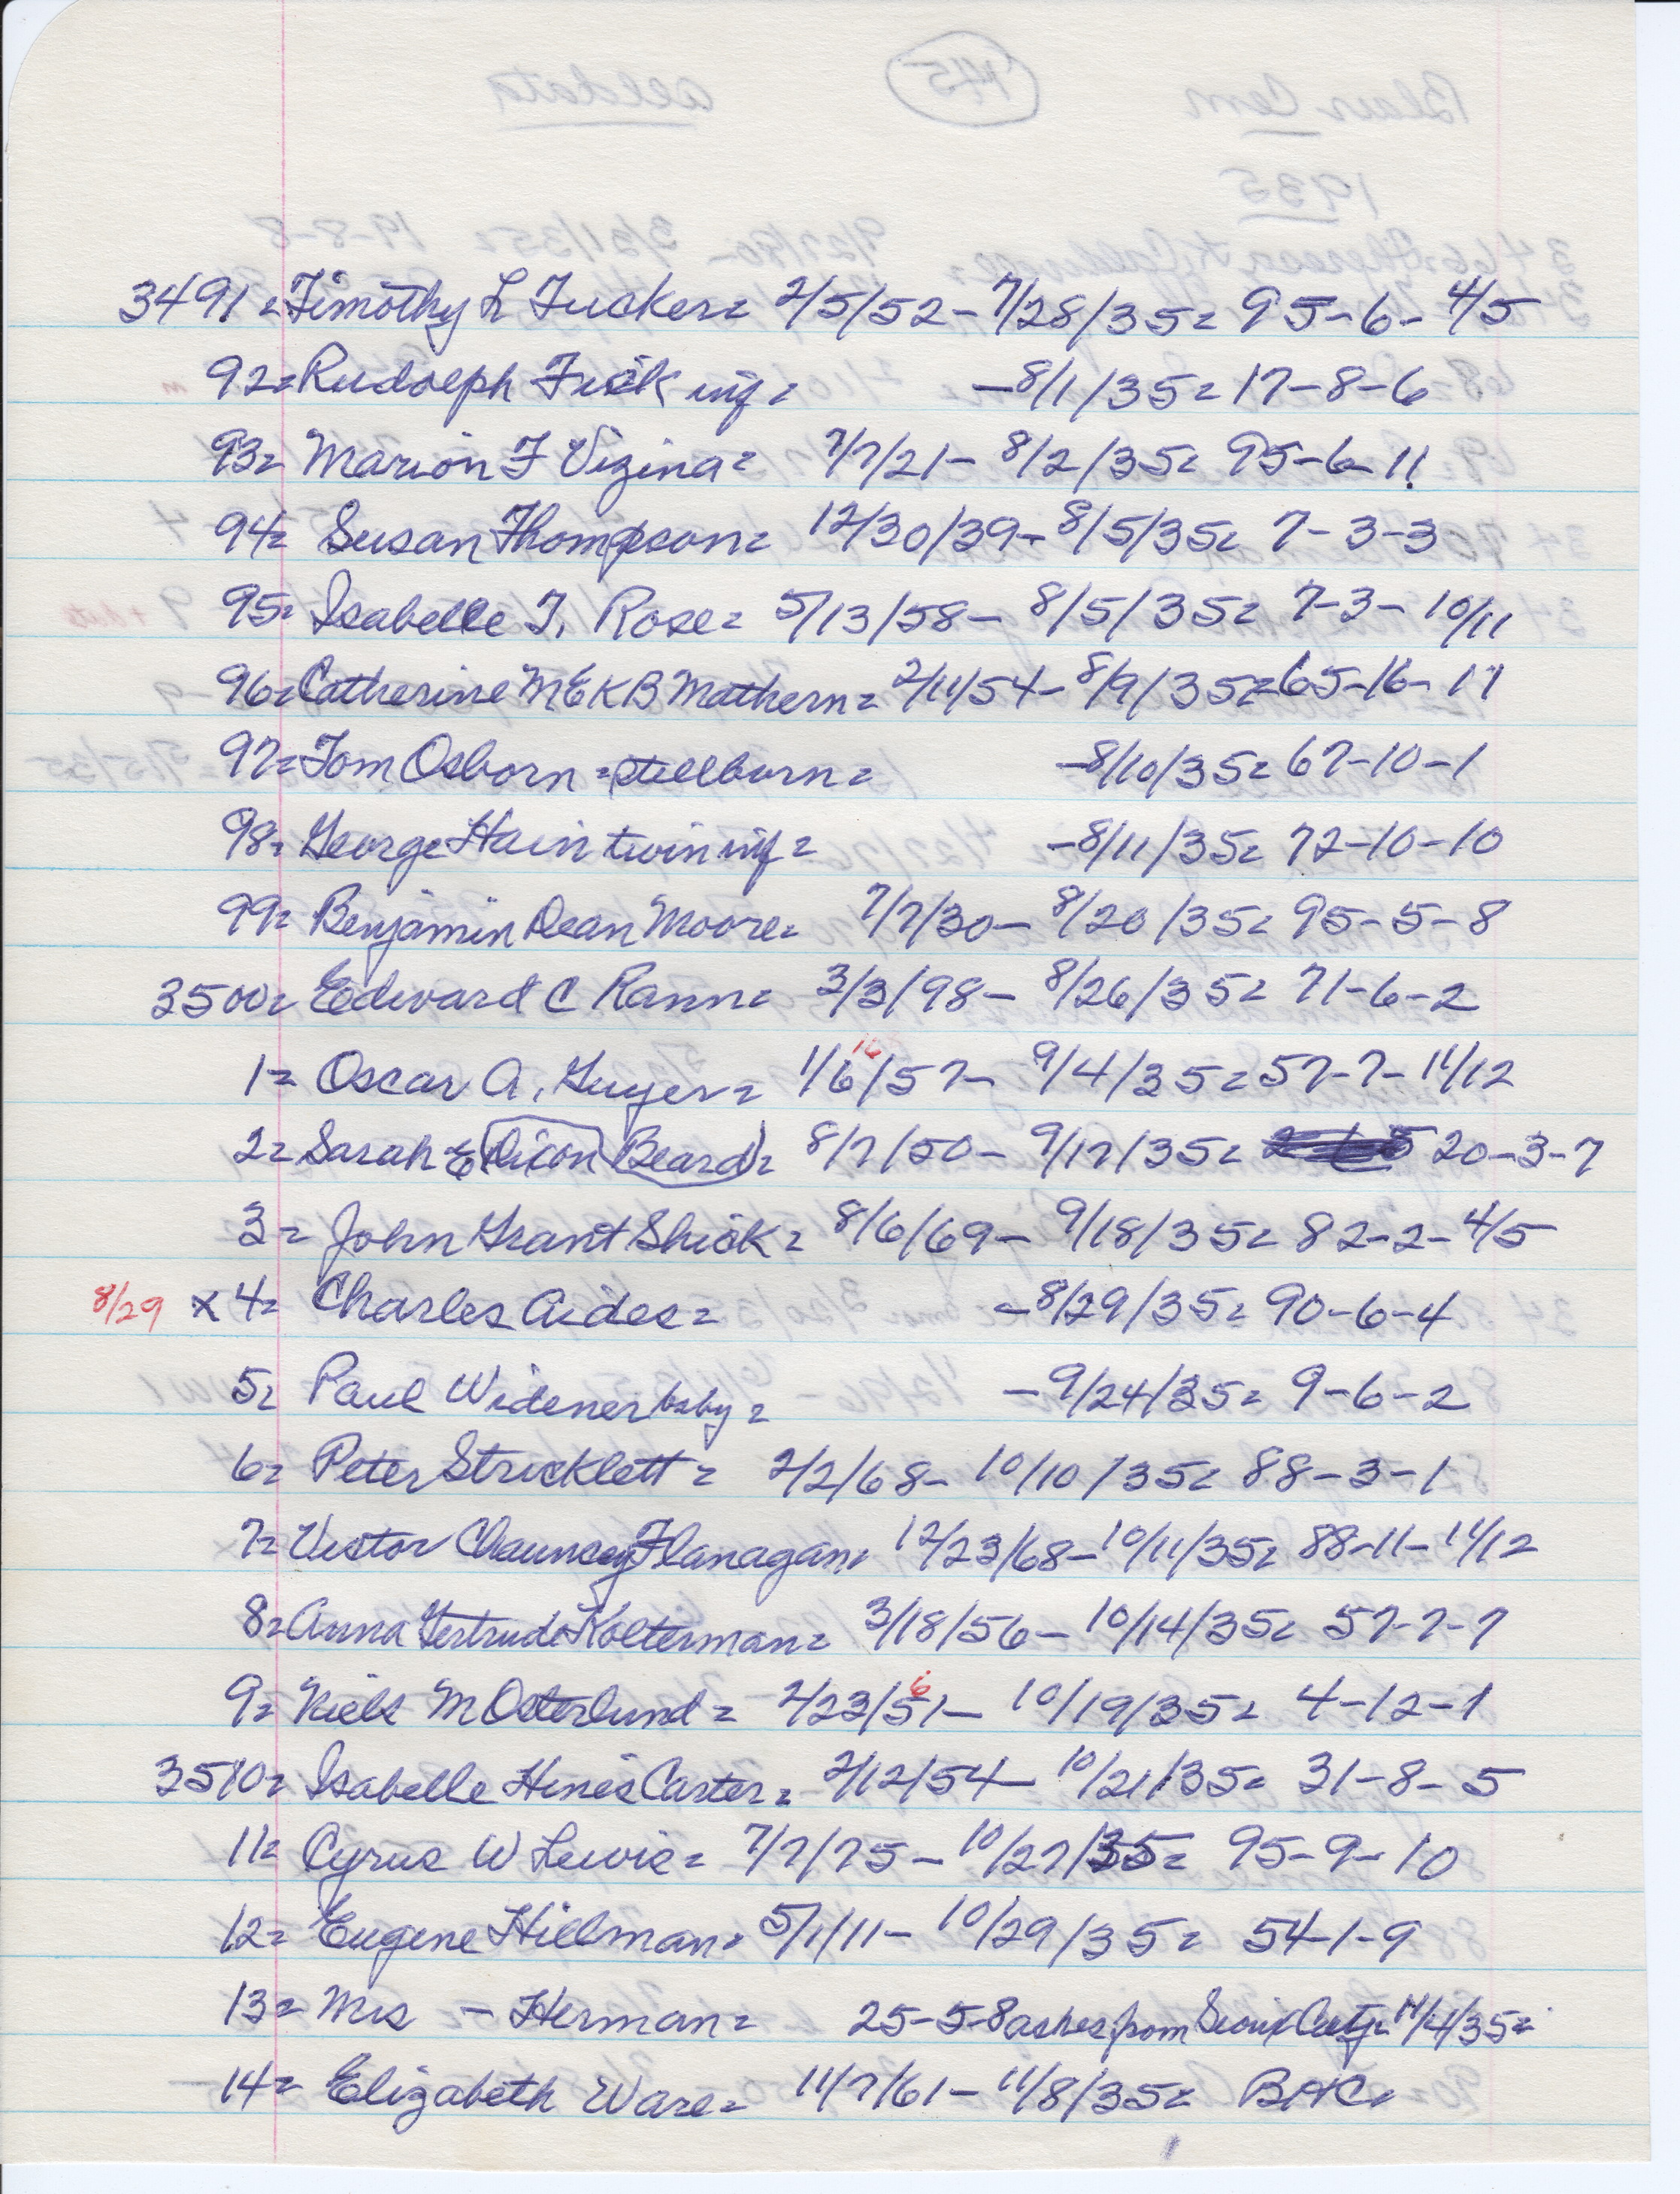 3491 = Timothy L Tucker = 2/5/52 - 7/28/35 = 95-6-4/5
92 = Rudolph Fick inf = - 8/1/35 = 17-8-6
93 = Marion F Vizina = 7/7/21 - 8/2/35 = 95-6-11
94 = Susan Thompson = 12/30/39 - 8/5/35 = 7-3-3
95 = Isabelle T. Rose = 5/13/58 - 8/5/35 = 7-3-10/11
96 = Catherine M E K B Mathern = 2/11/54 - 8/9/35 = 65-16-11
97 = Tom Osborn = stillborn = - 8/10/35 = 67-10-1
98 = George Hain twin inf = - 8/11/35 = 72-10-10
99 = Benjamin Dean Moore = 7/7/30 - 8/20/35 = 95-5-8
3500 = Edward C Rann = 3/3/98 - 8/26/35 = 71-6-2
16
1 = Oscar A. Guyer = 1/6/57 - 9/4/35 = 57-7-11/12
2 = Sarah E Dixon (Beard) = 8/7/50 - 9/17/35 = 20-3-7
3 = John Grant Shick = 8/6/69 - 9/18/35 = 82-2-4/5
8/29 x 4 = Charles Aides = - 8/29/35 = 90-6-4
5 = Paul Widener baby = - 9/24/35 = 9-6-2
6 = Peter Stricklett = 2/2/68 - 10/10/35 = 88-3-1
7 = Victor Chauncey Flanagan = 12/23/68 - 10/11/35 = 88-11-11/12
8 = Anna Gertrude Kolterman = 3/18/56 - 10/14/35 = 57-7-7
6
9 = Niels M Osterlund = 2/23/51 - 10/19/35 = 4-12-1
3510 = Isabelle Hines Carter = 2/12/54 - 10/21/35 = 31-8-5
11 = Cyrus W Lewis = 7/7/75 - 10/27/35 = 95-9-10
12 = Eugene Hillman = 5/1/11 - 10/29/35 = 54-1-9
13 = Mrs - Herman = 25-5-8 ashes from Sioux City = 11/4/35 =
14 = Elizabeth Ware = 11/7/61 - 11/8/35 =